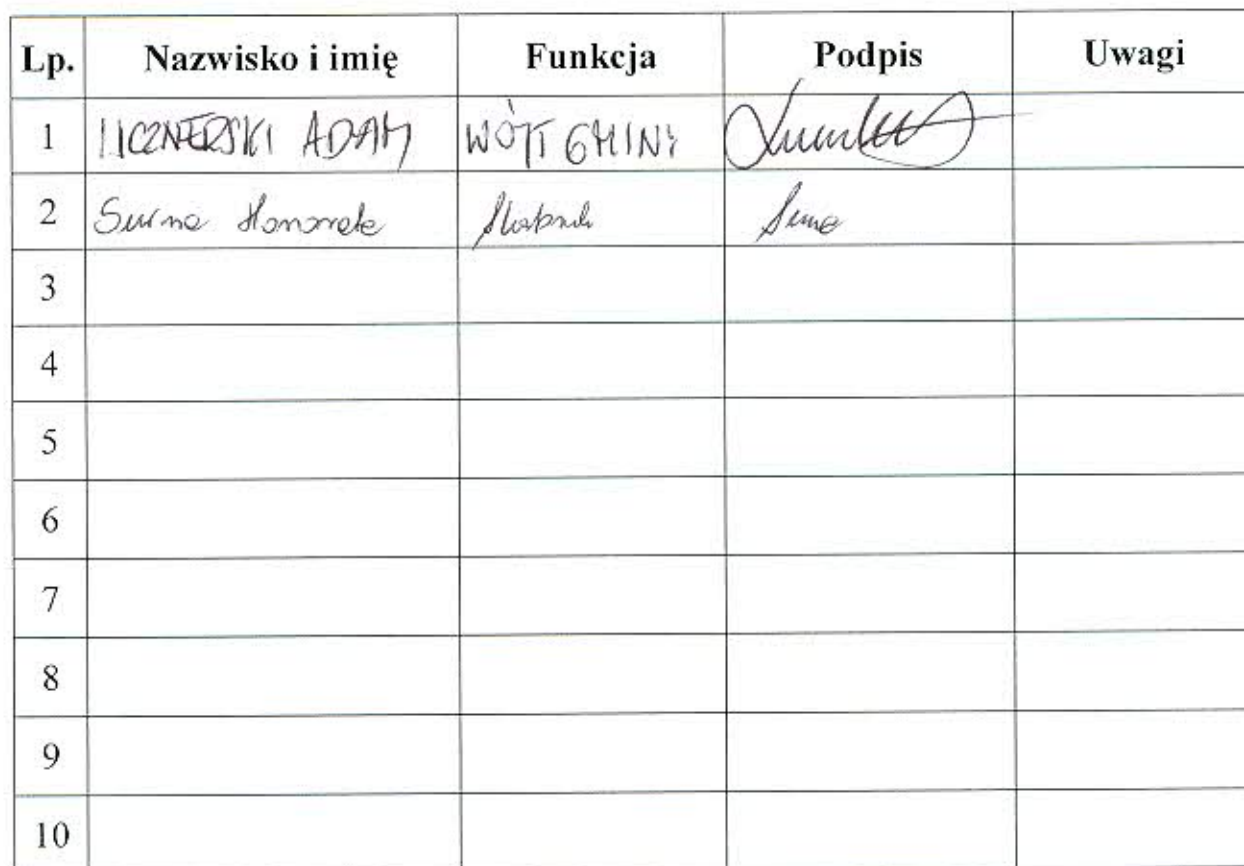 Lp. Nazwisko i imię Funkcja Podpis Uwagi
1 LICZNERSKI ADAM WÓJT GMINY
2 Surma Honorata Skarbnik
3
4
5
6
7
8
9
10